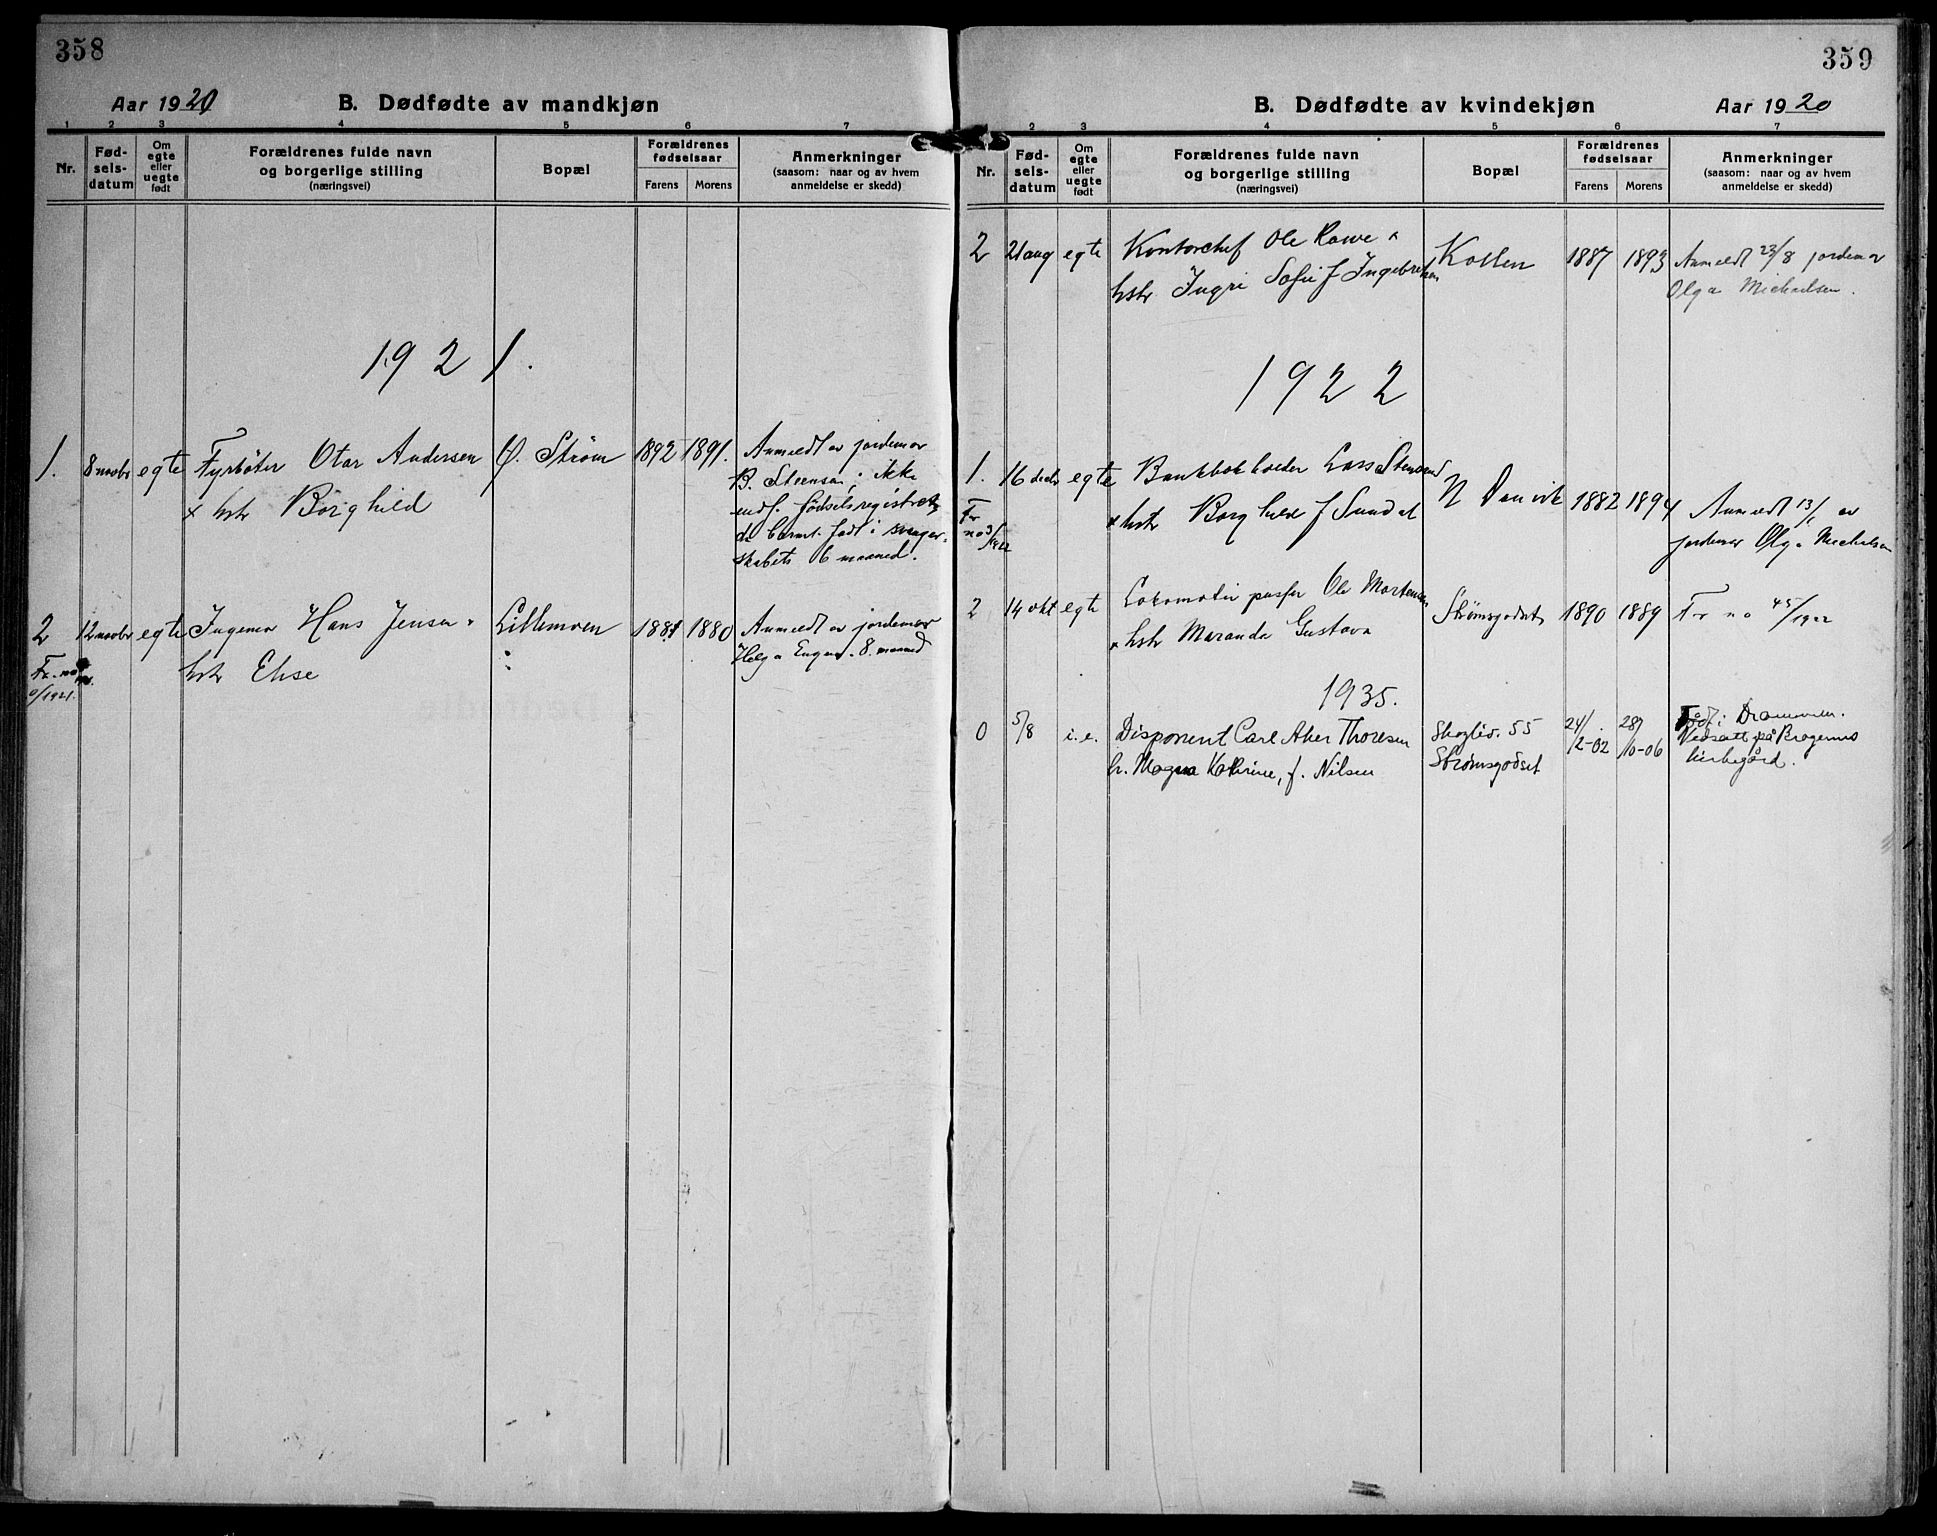 358
Aar 1920
B. Dødfødte av mandkjøn
1 2 3 4 5 6 7
Nr.
Fød-
sels-
datum
Om
egte
eller
uegte
født
Forældrenes fulde navn
og borgerlige stilling
(næringsvei)
Bopæl
Forældrenes
fødselsaar
Farens Morens
Anmerkninger
(saasom: naar og av hvem
anmeldelse er skedd)
1921.
1. 8 novbr egte Fyrbøter Otar Andersen Ø. Strøm 1892 1891. Anmeldt av jordemor
x hstr Borghild
B. Steensen; ikke
endf. fødselsregistret
da barnet født i svanger-
skabets 6 maaned.
2 12 novbr egte Ingeniør Hans Jensen x Lillemoen 1881 1880 Anmeldt av jordemor
hstr Else
Helga Engen. 8. maaned
Fr. no
/1921.
359
B. Dødfødte av kvindekjøn
Aar 1920
2 3 4 5 6 7
Nr.
Fød-
sels-
datum
Om
egte
eller
uegte
født
Forældrenes fulde navn
og borgerlige stilling
(næringsvei)
Bopæl
Forældrenes
fødselsaar
Farens Morens
Anmerkninger
(saasom: naar og av hvem
anmeldelse er skedd)
2 21 aug egte Kontorchef Ole Rowe x Kollen 1887 1893 Anmeldt 23/8 jordemor
hstr Ingri Sofie f Ingebretsen
Olga Michaelsen.
1922
1. 16 decbr egte Bankbokholder Lars Stensrud N Danvik 1882 1894 Anmeldt 13/1 av
x hstr Borghild f Sundet
jordemor Olga Michaelsen
Fr
no 3/1922
2 14 okt egte Lokomotiv pusser Ole Mortensen Strømsgodset 1890 1889 Fr no 45/1922
x hstr Maranda Gustava
1935.
0 5/8 i.e. Disponent Carl Aker Thoresen Skogliv. 55 24/12-02 28/10-06 Født i Drammen.
h. Magna Kathrine, f. Nilsen Strømsgodset
Nedsatt på Bragernes
kirkegård.